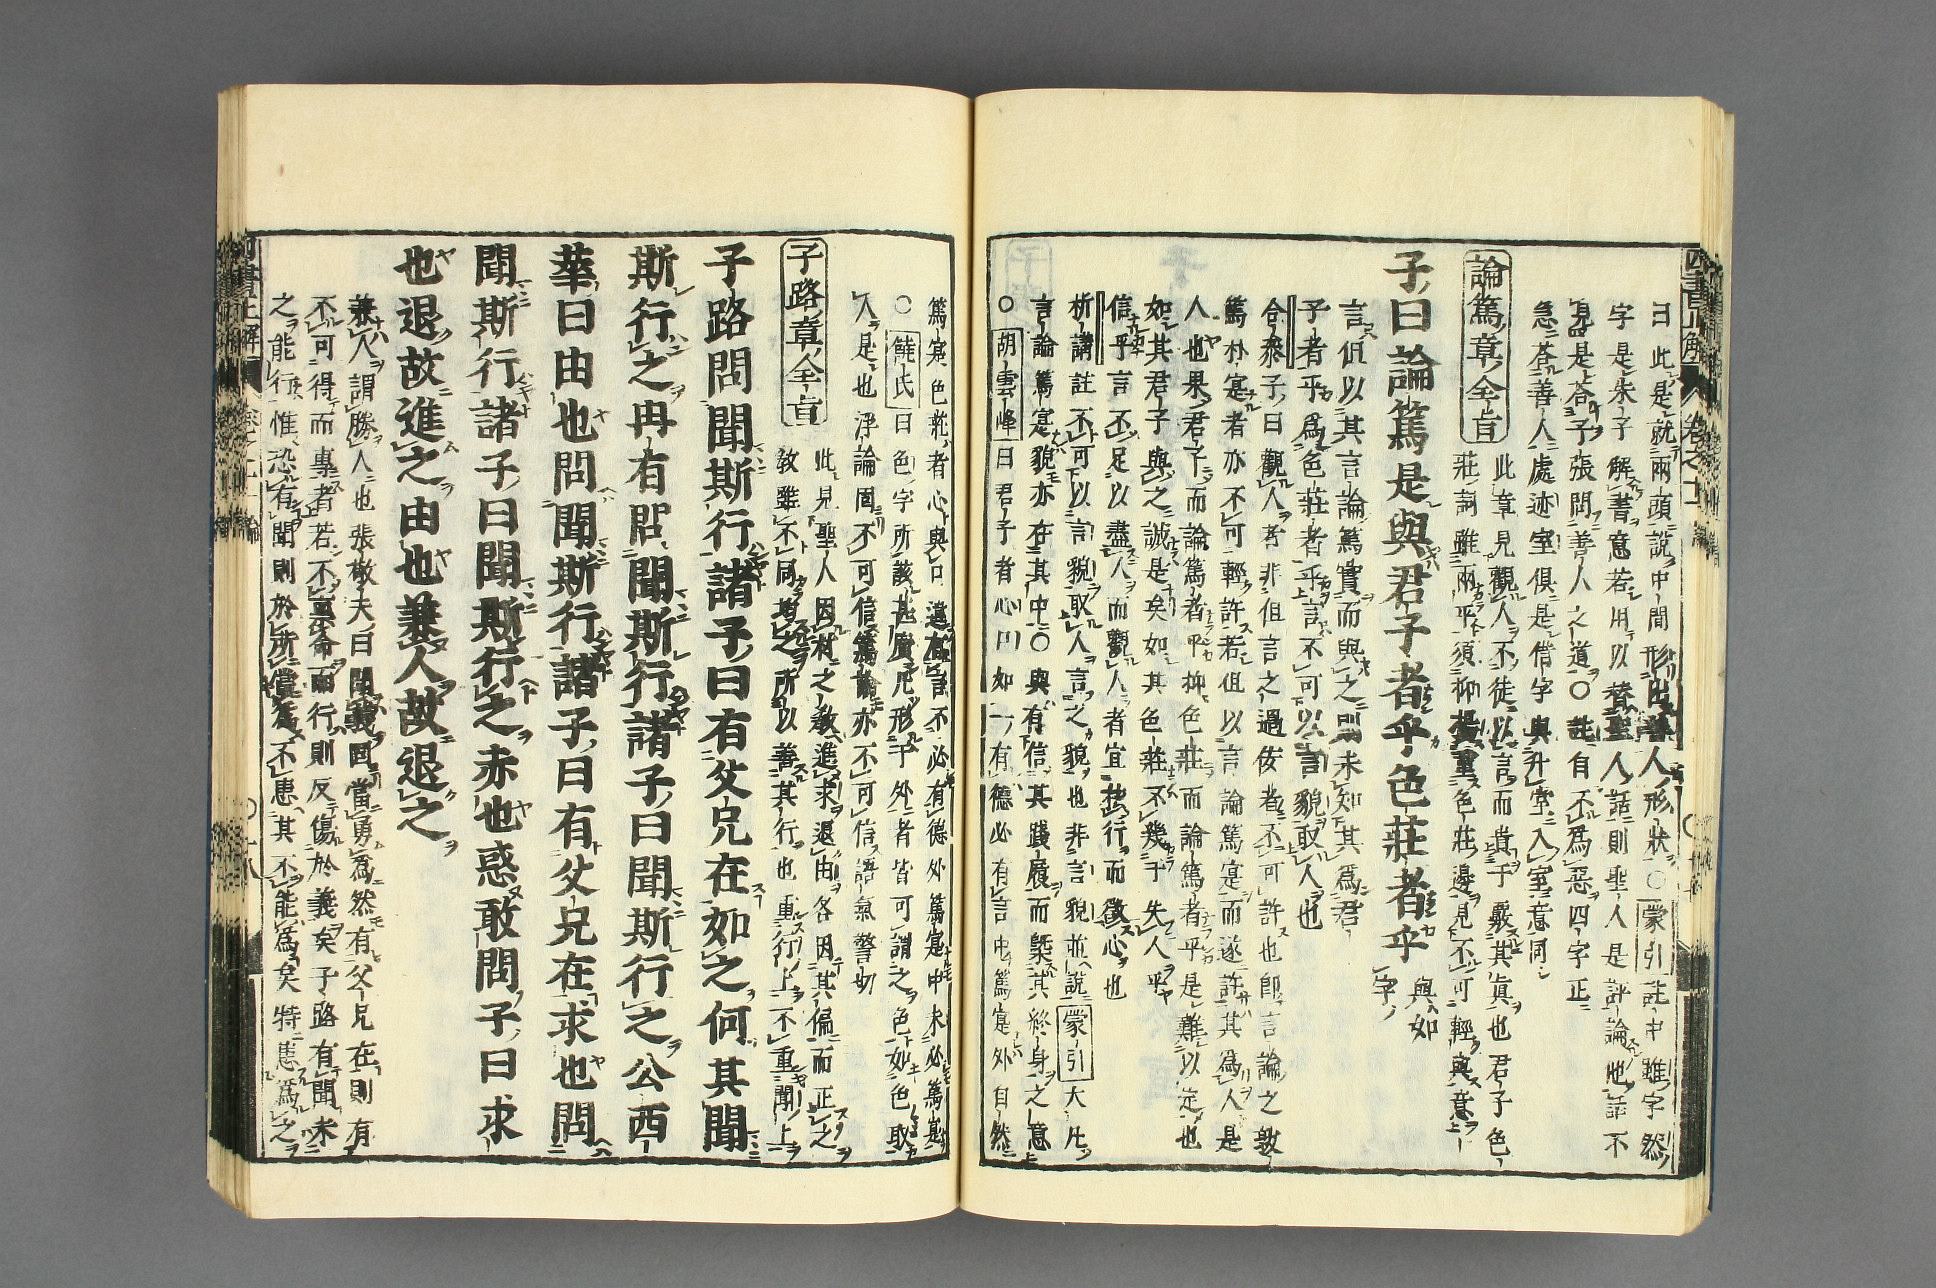 曰此是就兩頭說中間形出善人形狀○蒙引註中雖字然
字是朱子解書意若用以替聖人話則聖人是評論他話不
見是答子張問善人之道○註自不爲惡四字正
急答善人處迹室俱是借字與升堂入室意同
論篤章全旨
此章見觀人不徒以言而貴于覈其眞也君子色
莊詞雖兩平須抑揚重色莊邊見不可輕與意
子曰論篤是與君子者乎色莊者乎
與如字
言但以其言論篤實而與之則未知其爲君
子者乎爲色莊者乎言不可以言貌取人也
合參子曰觀人者非但言之過佞者不可許也即言論之敦
篤朴寔者亦不可輕許若但以言論篤寔而遂許其爲人是
人也果君子而論篤者乎抑色莊而論篤者乎是難以定也
如其君子與之誠是矣如其色莊不幾于失人乎
信乎言不足以盡人而觀人者宜於行而徵心也
析講註不可以言貌取人言之貌也非言貌並說蒙引大凡
言論篤寔貌亦在其中○與有信其踐履而槩其終身之意
○胡雲峰曰君子者心口如一有德必有言中篤寔外自然
篤寔色莊者心與口違有言不必有德外篤寔中未必篤寔
○饒氏曰色字所該甚廣凡形于外者皆可謂之色如色取
人是也浮論固不可信篤論亦不可信語氣警切
子路章全旨
此見聖人因材之敎進求退由各因其偏而正之
敎雖不同均之所以善其行也重行上不重聞上
子路問聞斯行諸子曰有父兄在如之何其聞
斯行之冉有問聞斯行諸子曰聞斯行之公西
華曰由也問聞斯行諸子曰有父兄在求也問
聞斯行諸子曰聞斯行之赤也惑敢問子曰求
也退故進之由也兼人故退之
兼人謂勝人也張敬夫曰聞義固當勇爲然有父兄在則有
不可得而專者若不稟命而行則反傷於義矣子路有聞未
之能行惟恐有聞則於所當爲不患其不能爲矣特患爲之